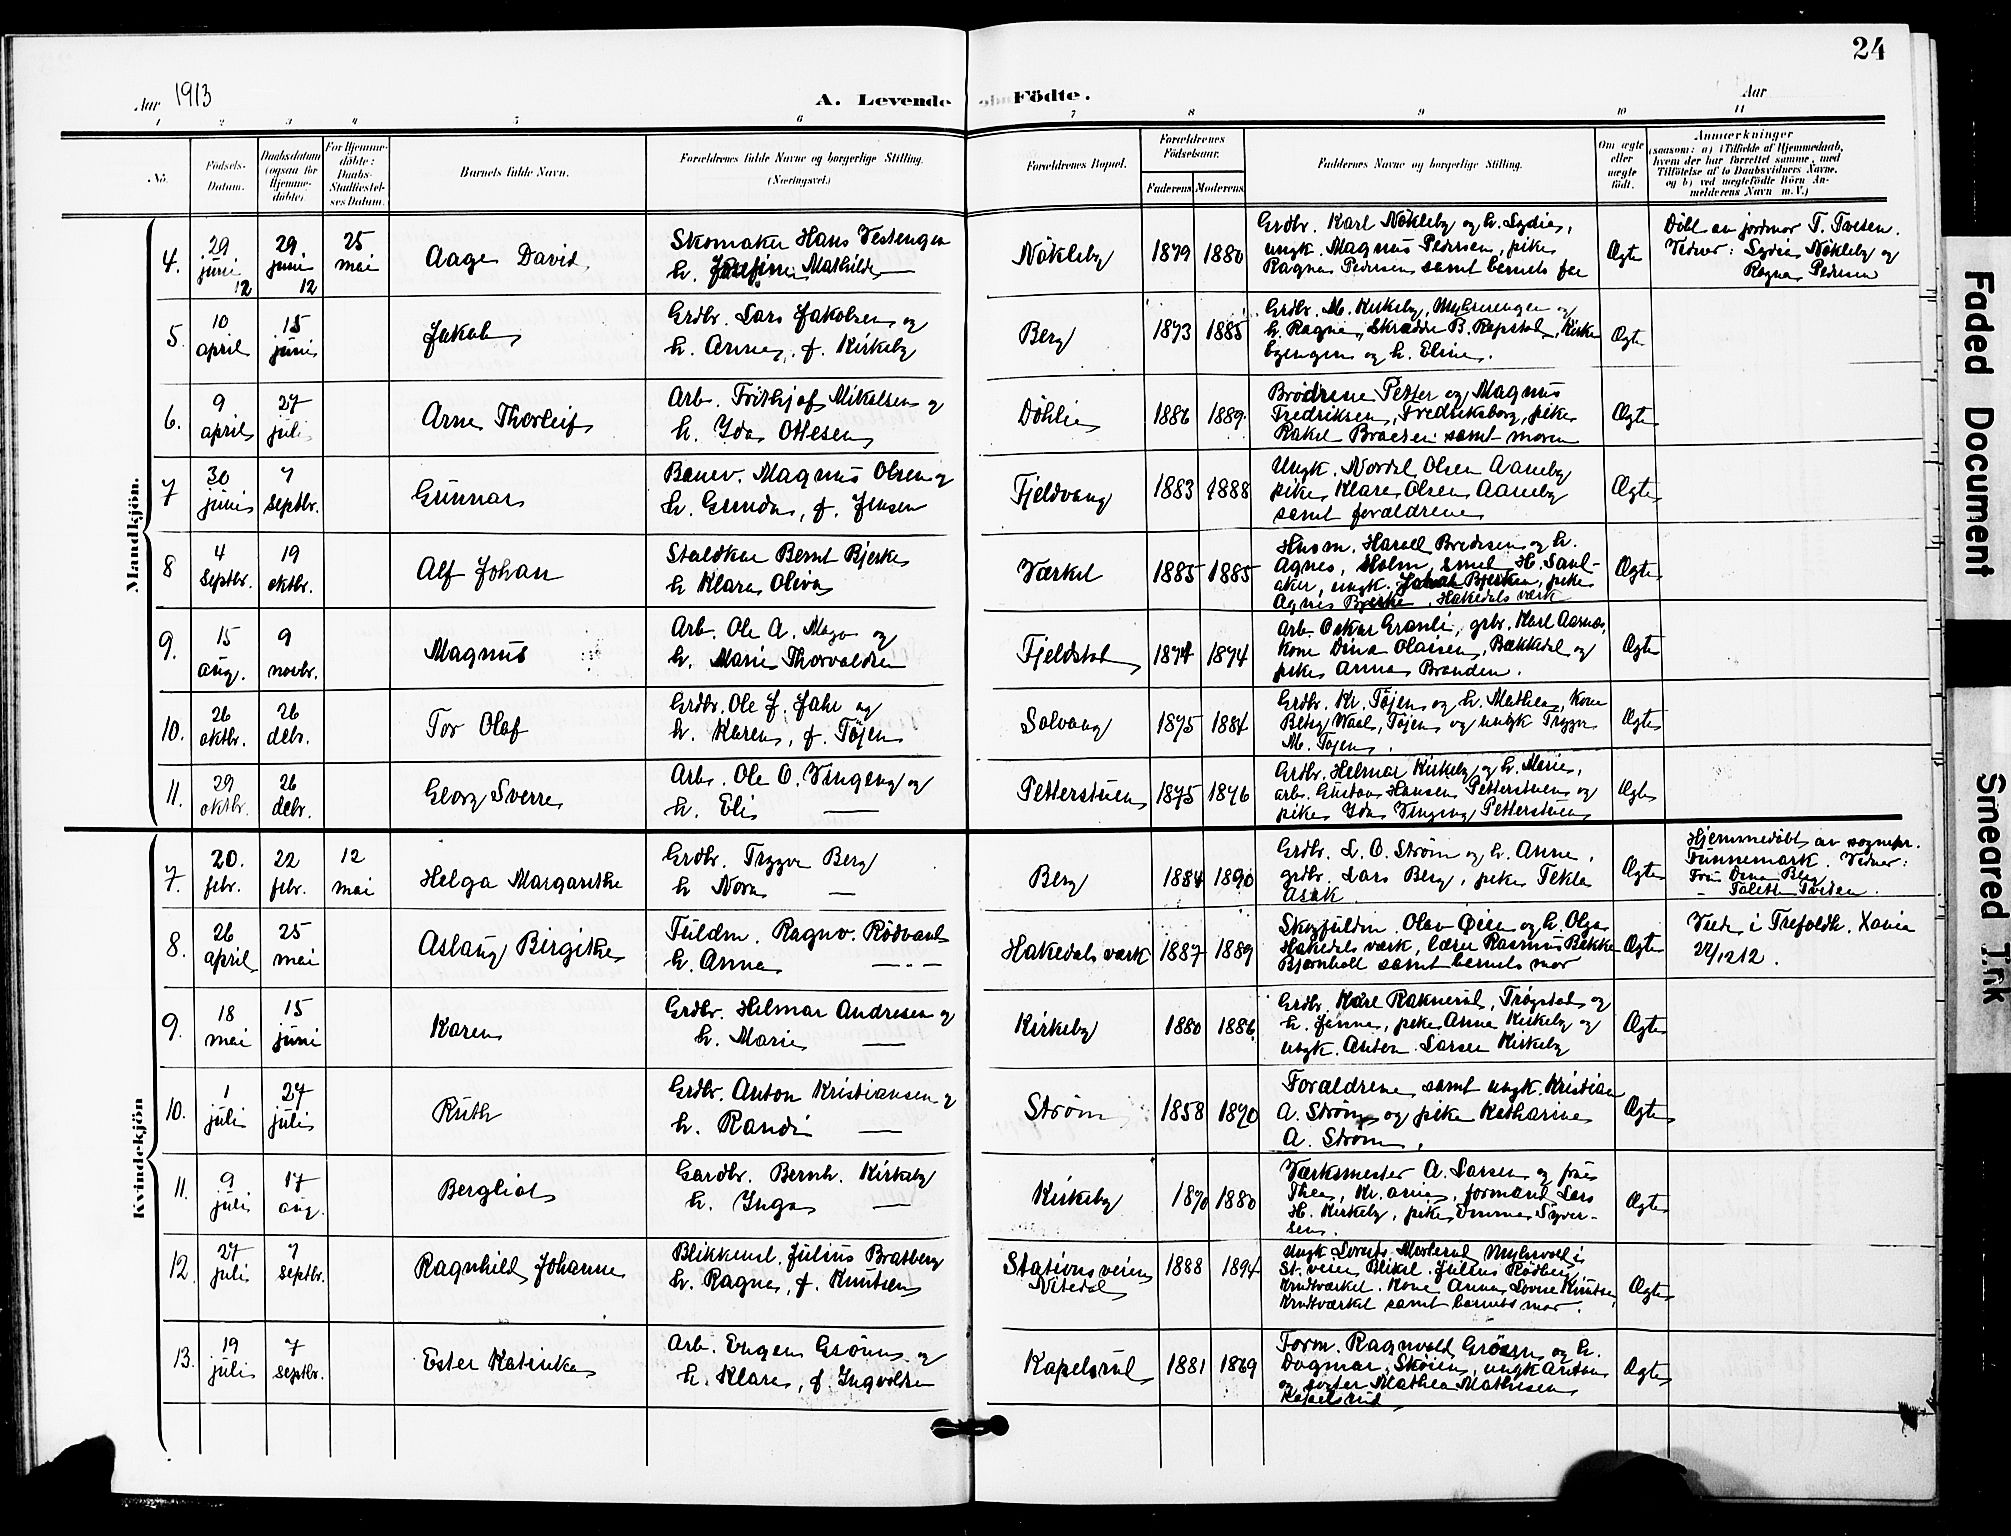 24
Aar 1913
A. Levende Födte.
Aar
1 2 3 4 5 6 7 8 9 10 11
No.
Födsels-
Datum.
Daabsdatum
(ogsaa for
Hjemme-
döbte).
For Hjemme-
döbte:
Daabs-
Stadfæstel-
ses Datum.
Barnets fulde Navn.
Forældrenes fulde Navne og borgerlige Stilling.
(Næringsvei.)
Forældrenes Bopæl.
Forældrenes
Födselsaar.
Faderens Moderens
Faddernes Navne og borgerlige Stilling.
Om ægte
eller
uægte
födt.
Anmærkninger
(saasom: a) i Tilfælde af Hjemmedaab,
hvem der har forrettet samme, med
Tilföielse af to Daabsvidners Navne,
og b) ved uægtefödte Börn An-
melderens Navn m. V.)
Mandkjön.
4. 29 juni 12 29 juni 12 25 mai Aage David
Skomaker Hans Vestengen
h. Josefine Mathilde —
Nökleby 1879 1880
Grdbr. Karl Nökleby og h. Lydia,
ungk. Magnus Pedersen, pike
Ragna Pedersen samt barnets far
Ægte
Döbt av jordmor T. Tvesen.
Vidner: Lydia Nökleby og
Ragna Pedersen
5. 10 april 15 juni Jakob
Grdbr. Lars Jakobsen og
h. Anna, f. Kirkeby
Berg 1873 1885
Grdbr. M. Kirkeby,
h. Ragna, Skrædder B. Rapstad, Kirke
byengen og h. Eline.
Ægte
6. 9 april 27 juli Arne Thorleif
Arb. Frithjof Mikalsen og
h. Ida Ottesen
Döhlie 1886 1889
Brödrene Petter og Magnus
Fredriksen, Fredriksborg, pike
Rakel samt moren
Ægte
7 30 juni 7 septbr. Gunnar
Banev. Magnus Olsen og
h. Gunda, f. Jensen
Fjeldvang 1883 1888
Ungk. Nordal Olsen Aaneby
pike Klara Olsen Aaneby
samt forældrene
Ægte
8 4 septbr. 19 oktbr. Alf Johan
Staldkar Bernt Bjerke
h Klara Oliva
Værket 1885 1885
Husm. Harald Bredesen og h.
Agnes, Holm, smed H. Saul-
aker, ungk. Johan Bjerke, pike
Agnes Bjerke, Hakedals værk
Ægte
9. 15 aug. 9 novbr. Magnus
Arb. Ole A. Moga og
h. Marie Thorvaldsen
Fjeldstad 1874 1874
Arb. Oskar Granli, grbr. Karl Aarnæs,
kone Dina Olaisen, Bækkedal og
pike Anna Branden.
Ægte
10. 26 oktbr. 26 debr. Tor Olaf
Grdbr. Ole J. Jahr og
h. Karen, f. Töjen
Solvang 1875 1884
Grdbr. Kr. Töjen og h. Mathea, Kone
Betsy Waal, Töjen og ungk Trygve
M. Töjen.
Ægte
11. 29 oktbr. 26 debr. Georg Sverre
Arb. Ole O. Vingeng og
h. Eli —
Petterstuen 1875 1876
Grdbr. Helmar Kirkeby og h. Marie,
arb. Gustav Hansen Petterstuen og
pike Ida Vingeng Petterstuen
Ægte
Kvindekjön
7. 20. febr. 22 febr. 12 mai Helga Margarethe
Grdbr. Trygve Berg
h Nora —
Berg 1884 1890
Grdbr. L. O. Ström og h. Anna,
grdbr. Lars Berg, pike Tekla
Asak
Ægte
Hjemmedöbt av sognepr.
Funnemark. Vidner:
Fru Dina Berg
— Talette
8. 26 april 25 mai Aslaug Birgithe
Fuldm. Ragnv. Rödvand
h. Anna —.—
Hakedals værk 1887 1889
Skogfuldm. Olav Öien og h. Olga
Hakedals værk, lærer Rasmus Bekke
Bjørnholt samt barnets mor
Ægte
Viede i Trefoldh. Xania
22/12 12.
9. 18 mai 15 juni Karen
Grdbr. Helmar Andresen og
h. Marie —
Kirkeby 1880 1886
Grdbr. Karl Raknerud, Trögstad og
h. Jenna, pike Anna Kirkeby og
ungk. Anton Larsen Kirkeby
Ægte
10. 1 juli 27 juli Ruth
Grdbr. Anton Kristiansen og
h. Randi —
Strøm 1858 1870
Forældrene samt ungk Kristian
A. Strøm og pike Katharina
A. Strøm.
Ægte
11. 9 juli 17 aug. Bergliot
Gardbr. Bernh. Kirkeby
h. Inga —
Kirkeby 1870 1880
Værksmester A. Larsen og frue
Thea, Kr. ania, formand Lars
H. Kirkeby, pike Emma Syver-
sen.
Ægte
12. 27 juli 7 septbr. Ragnhild Johanne
Blikkensl. Julius Bratberg
h. Ragna, f. Knutsen
Stationsveien
Nitedal
1888 1894
Ungk Myhrvold i
St. veien Blikksl. Julius Rödberg
Krudtværket. Kone Anna Lovise Knutsen
Krudtværket samt barnets mor.
Ægte
13. 19 juli 7 septbr. Ester Katinka
Arb. Eugen Grönn og
h. Klara, f. Ingvoldsen
Kapelsrud 1881 1869
Form. Ragnvald Grösen og h.
Dagmar, Sköien, ungk Anton
og søster Mathea Mathisen
Kapelsrud
Ægte
Faded Document
Smeared Ink